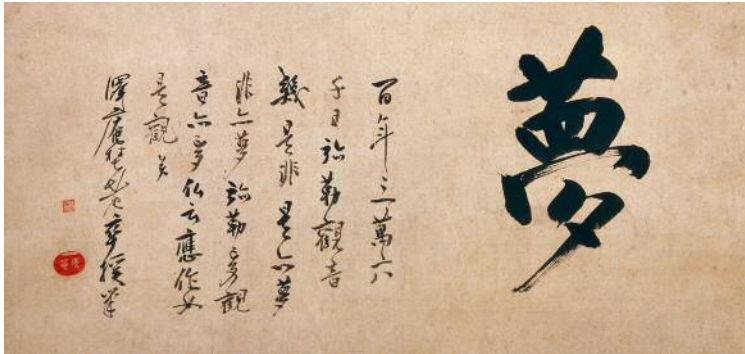 夢
百年三萬六
千日弥勒觀音
幾是非是亦夢
非亦夢弥勒夢觀
音亦夢仏云應作如
是觀矣
澤庵老卒援筆